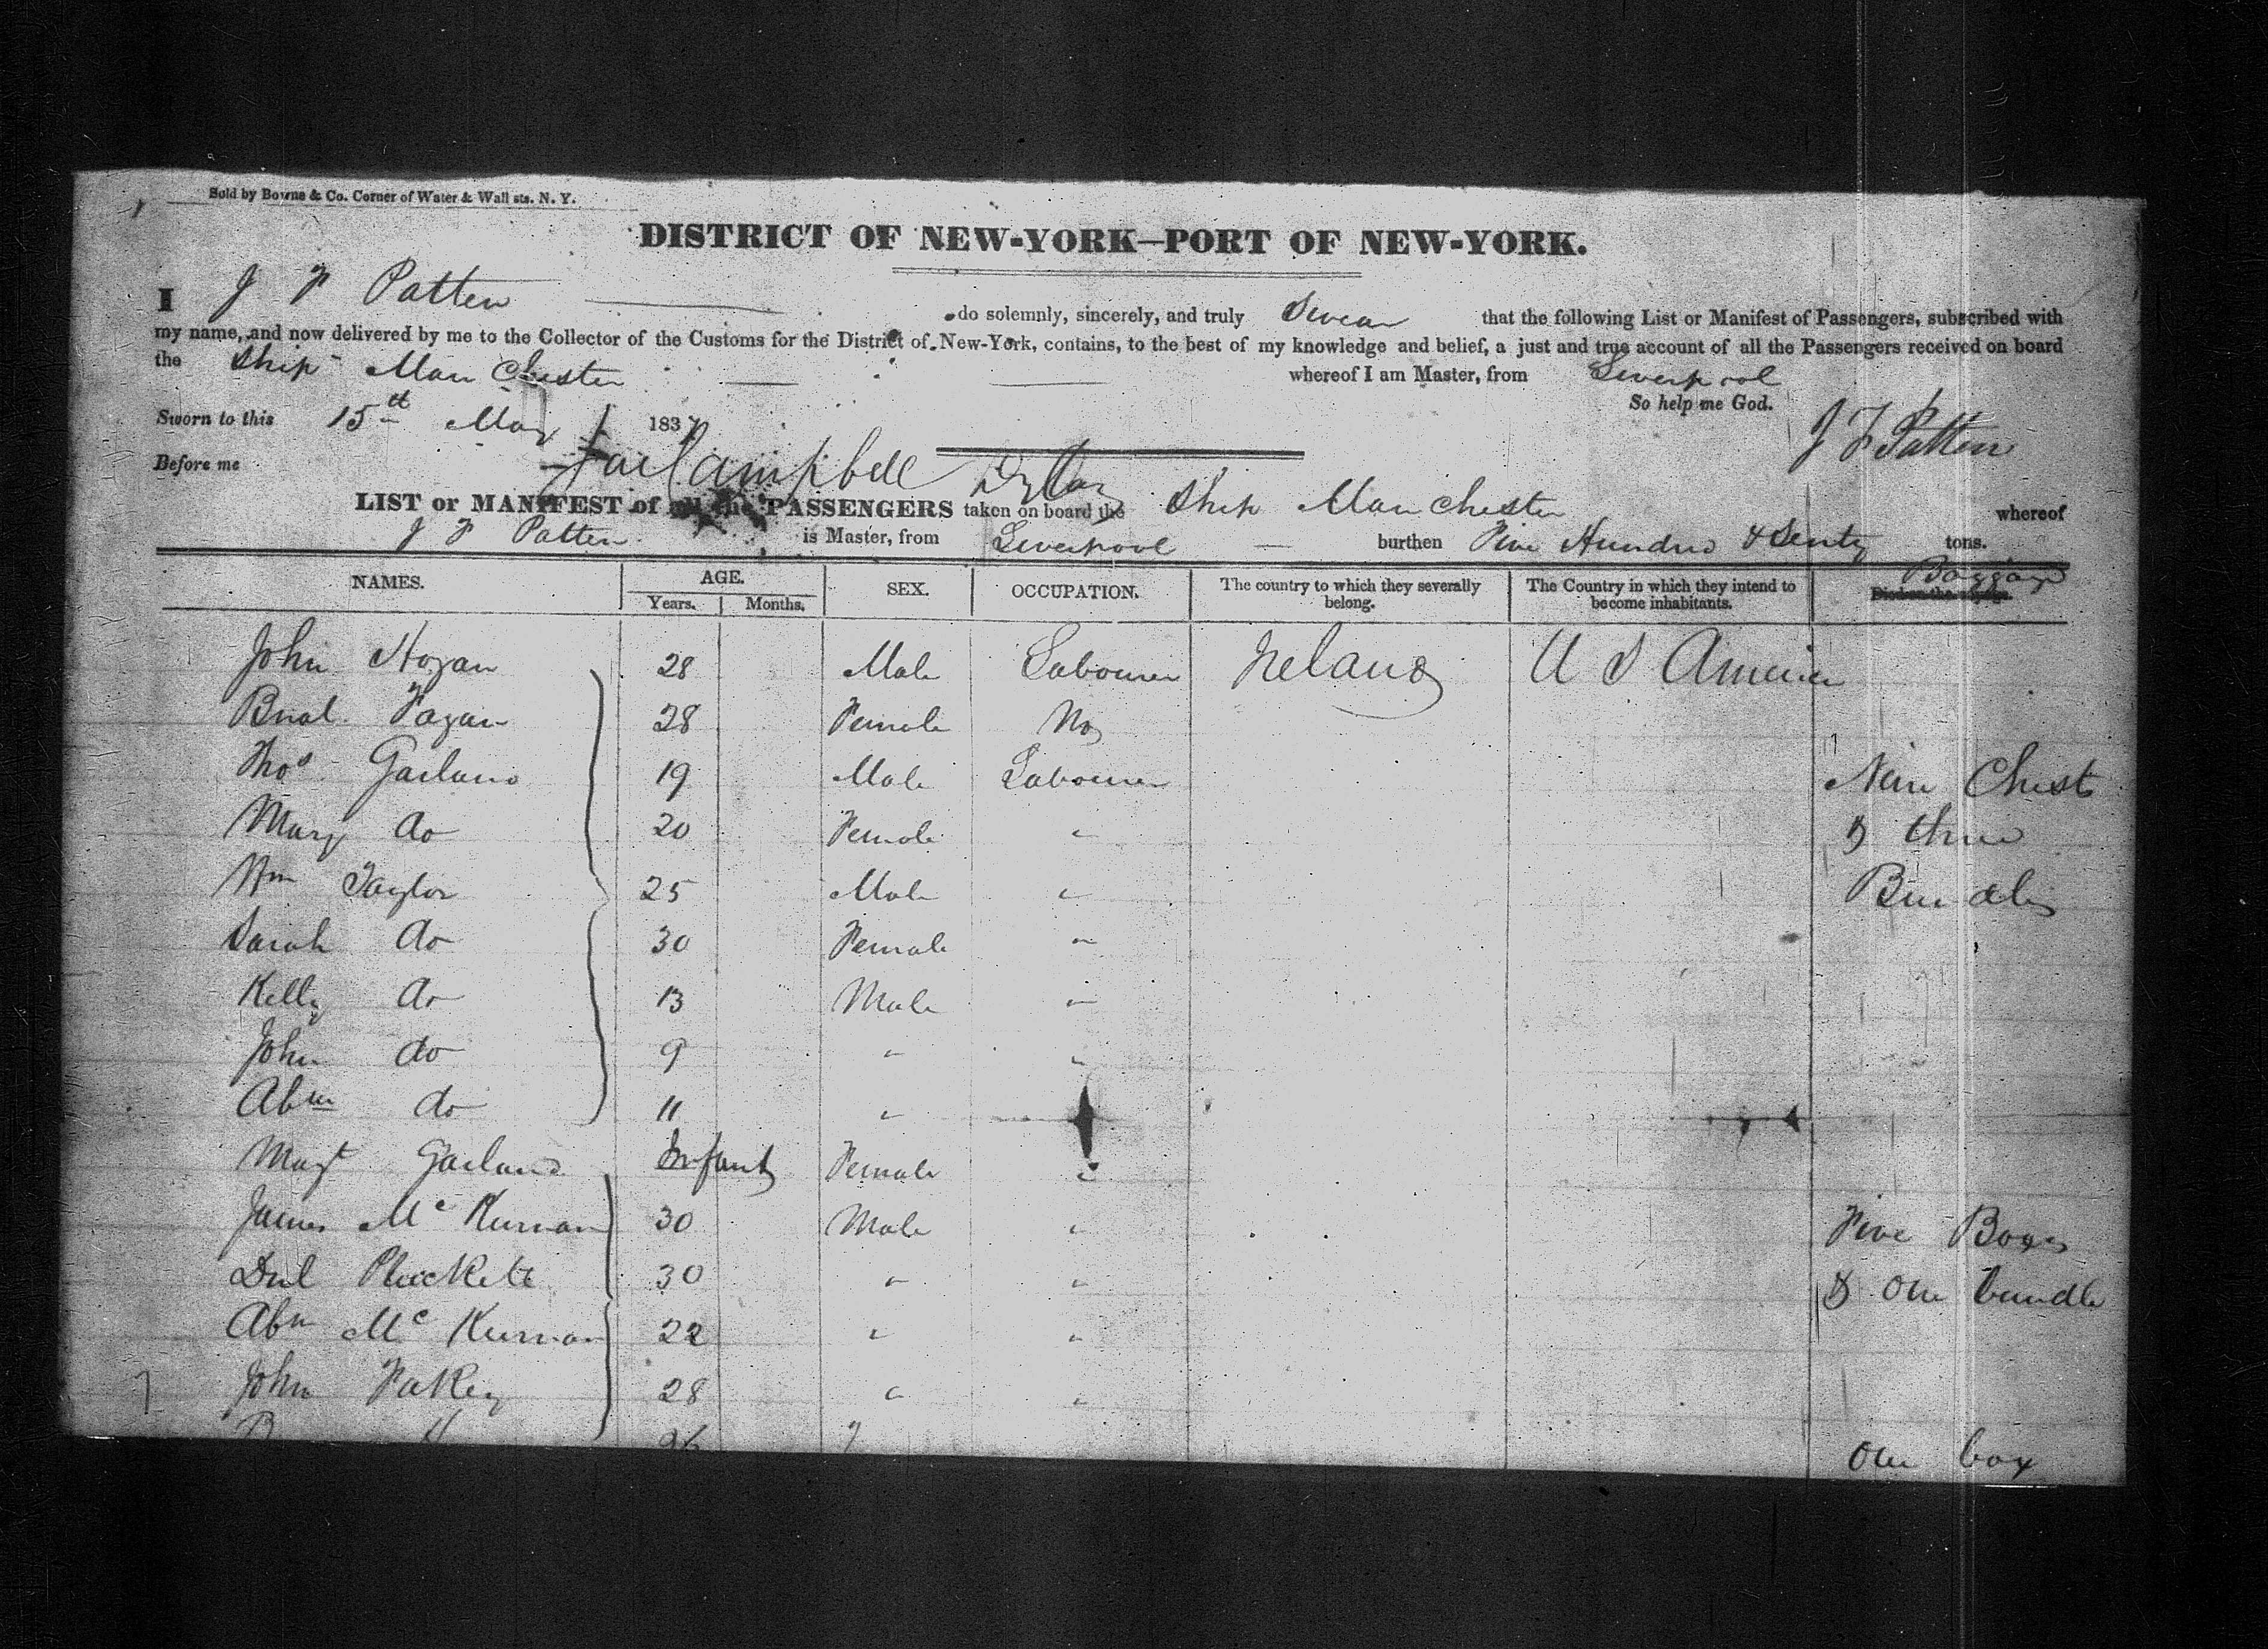 Sold by Bowne & Co. Corner of Water & Wall sts. N. Y.
DISTRICT OF NEW-YORK—PORT OF NEW-YORK.
I J F Patten do solemnly, sincerely, and truly Swear that the following List or Manifest of Passengers, subscribed with
my name, and now delivered by me to the Collector of the Customs for the District of New-York, contains, to the best of my knowledge and belief, a just and true account of all the Passengers received on board
the Ship Manchester whereof I am Master, from Liverpool
So help me God.
Sworn to this 15th May 1837
J F Patten
Before me Campbell
LIST or MANIFEST of all the PASSENGERS taken on board the Ship Manchester whereof
J F Patten is Master, from Liverpool burthen Five Hundred & tons.
NAMES. AGE. SEX. OCCUPATION. The country to which they severally belong. The Country in which they intend to become inhabitants. Baggage
Years. Months.
John Hogan 28 Male Labourer Ireland U S America
Fagan 28 Female No
Thos Garland 19 Male Labourer Nine Chests
Mary do 20 Female " & three
Wm Taylor 25 Male " Bundles
Sarah do 30 Female "
Kelly do 13 Male "
John do 9 " "
Abm do 11 "
Magt Garland Infant Female "
James McKurnan 30 Male " Five Boxes
Dnl Pluckett 30 " " & One bundle
Abm McKurnan 22 " "
John Fakey 28 " "
26
One box